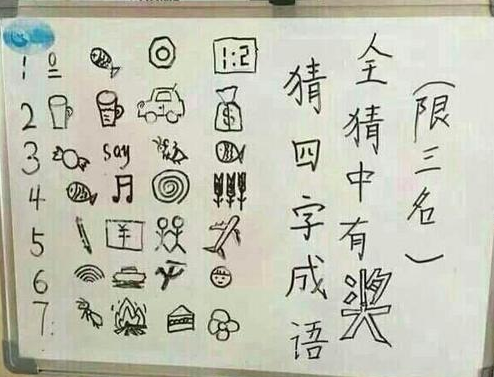 全猜中有奖
(限三名)
猜四字成语
1
1:2
2
$
3
say
4
5
¥
6
7: